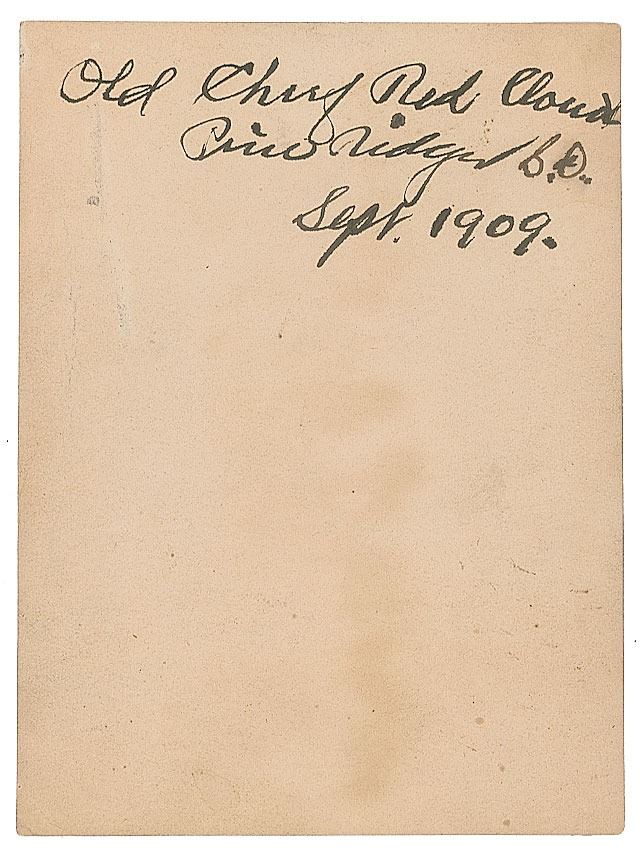 Old Chief Red Cloud
Pine ridge S.D.
Sept. 1909.